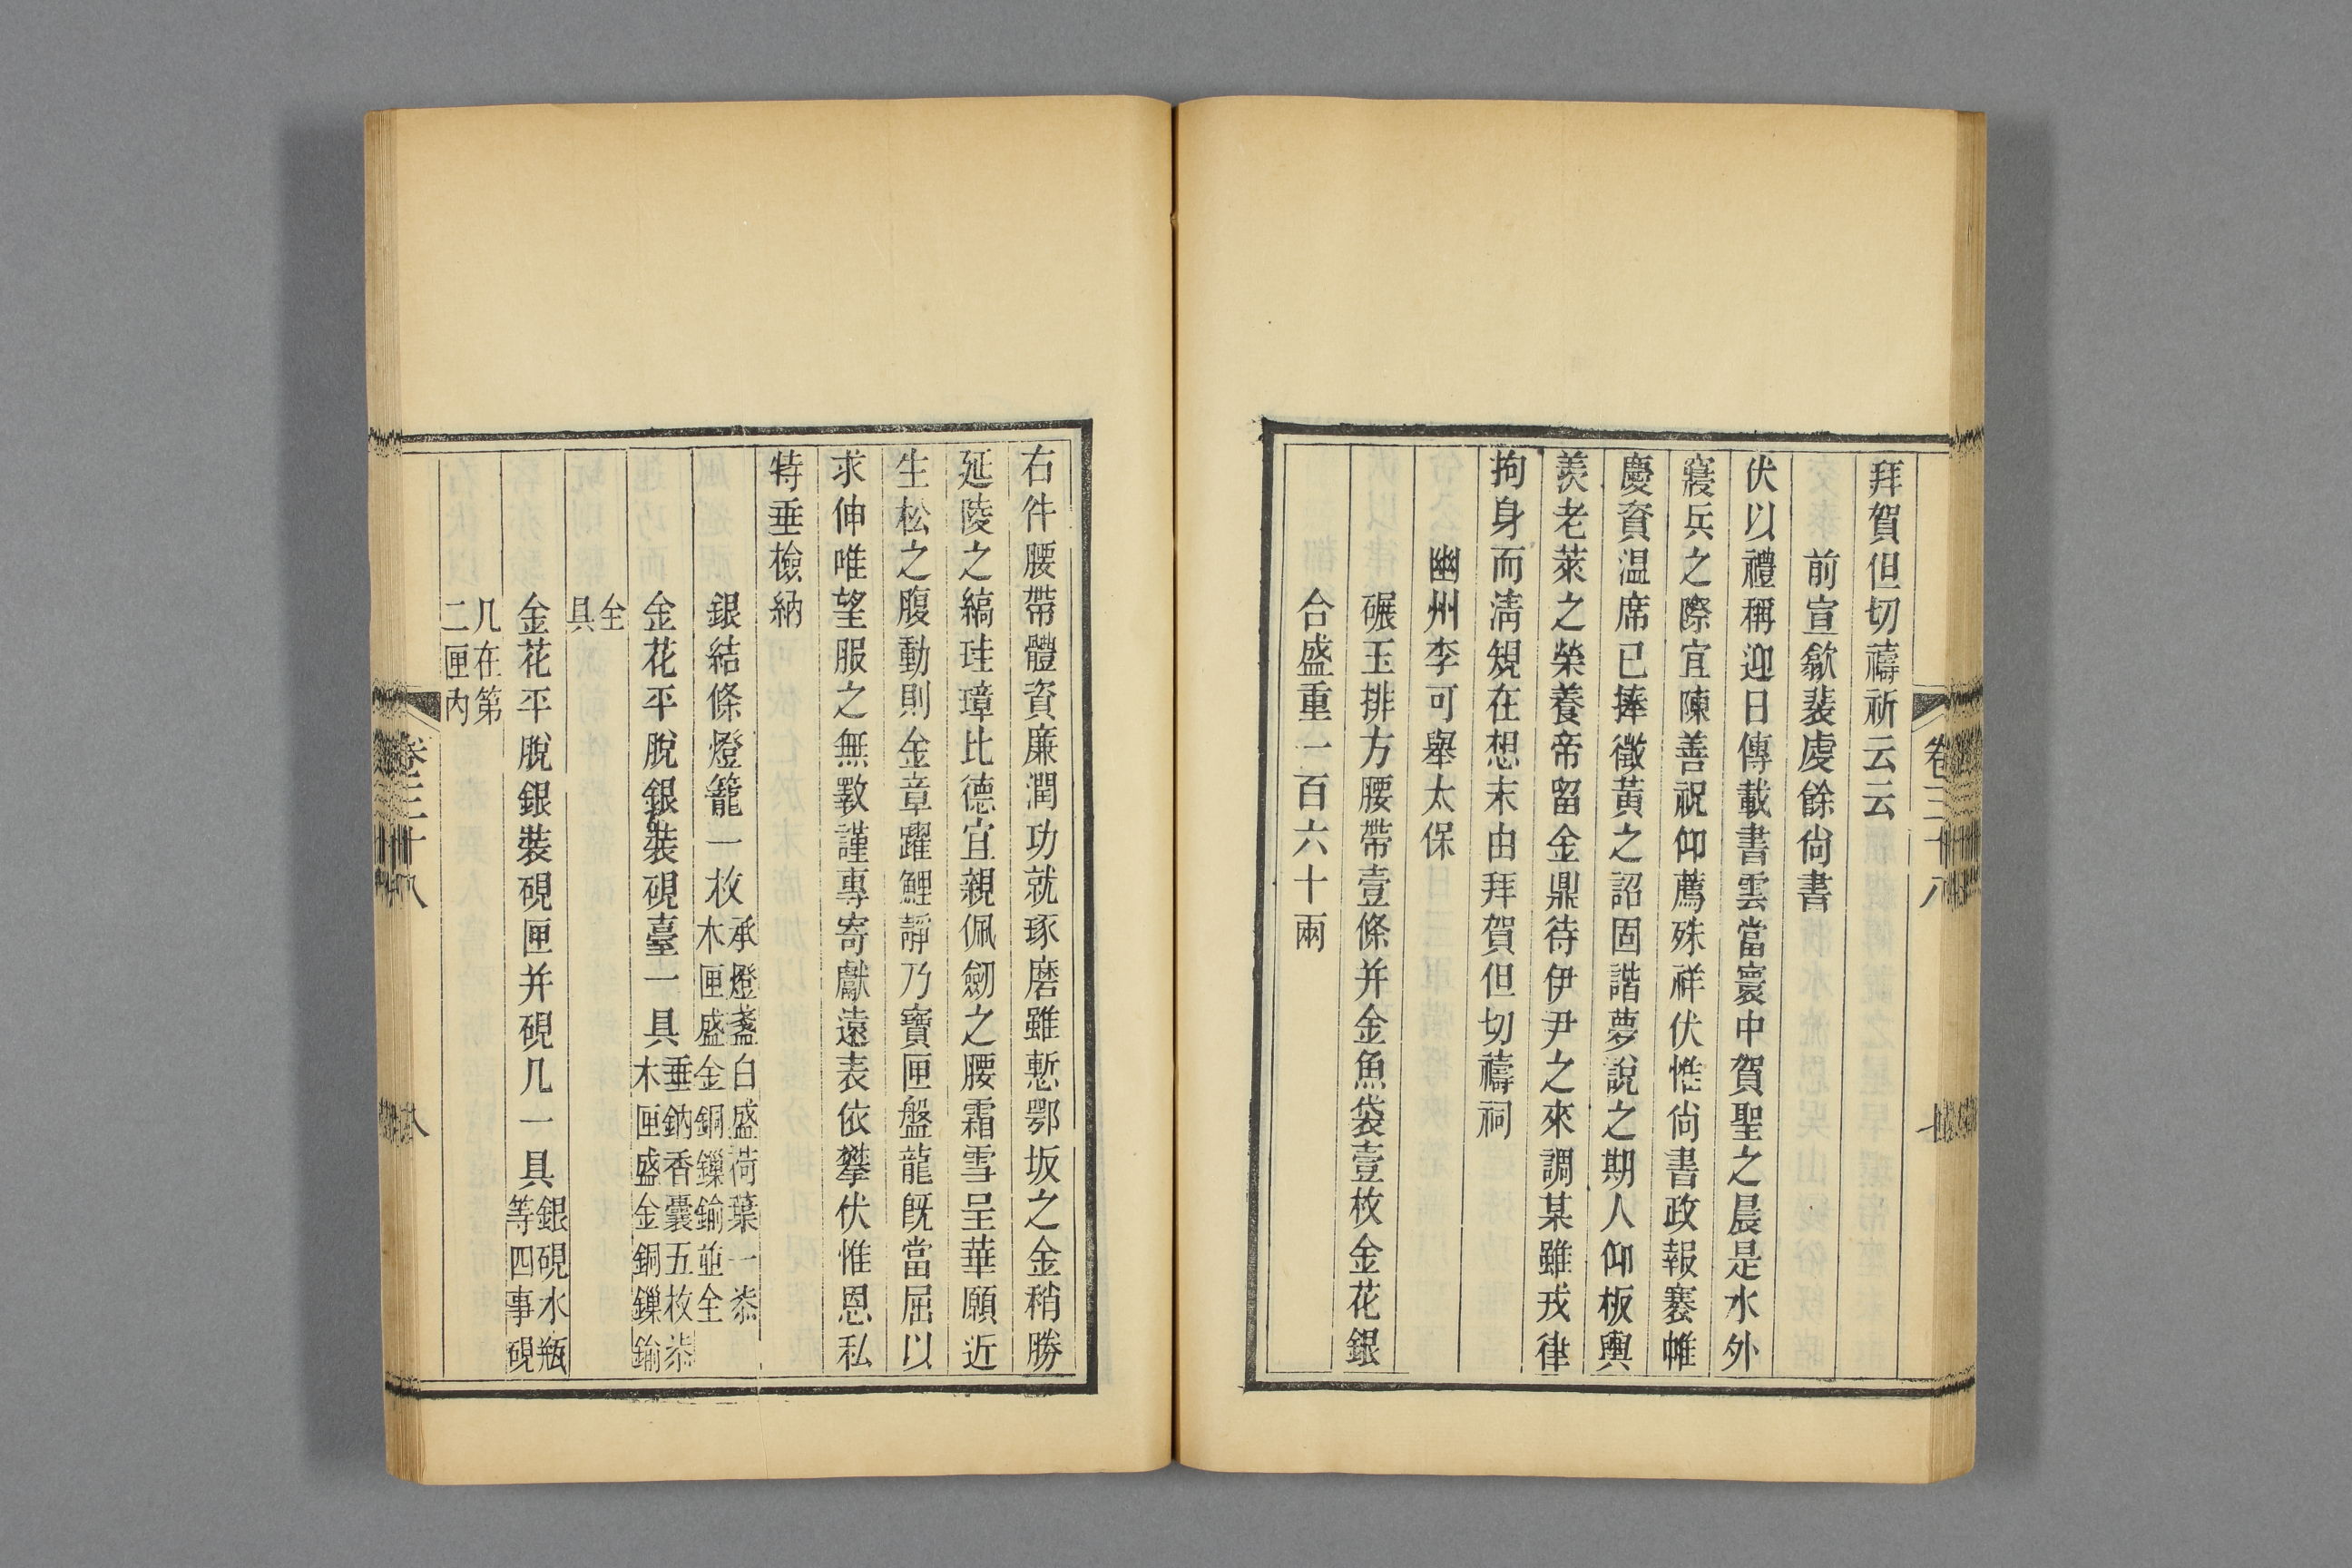 拜賀但切禱祈云云
前宣歙裴虔餘尙書
伏以禮稱迎日傳載書雲當寰中賀聖之晨是水外
寢兵之際宜陳善祝仰薦殊祥伏惟尙書政報褰帷
慶資温席已捧徵黃之詔固諧夢說之期人仰板輿
羨老萊之榮養帝留金鼎待伊尹之來調某雖戎律
拘身而淸䂓在想末由拜賀但切禱祠
幽州李可舉太保
碾玉排方腰帶壹條并金魚袋壹枚金花銀
合盛重一百六十兩
右件腰帶體資廉潤功就琢磨雖慙鄂坂之金稍勝
延陵之縞珪璋比德宜親佩劒之腰霜雪呈華願近
生松之腹動則金章躍鯉靜乃寶匣盤龍旣當屈以
求伸唯望服之無斁謹專寄獻遠表依攀伏惟恩私
特垂檢納
銀結條燈籠一枚承燈盞白盛荷葉一
木匣盛金銅鏁鍮並全
金花平脫銀裝硯臺一具垂鈉香囊五枚
木匣盛金銅鏁鍮
全
具
金花平脫銀裝硯匣并硯几一具銀硯水瓶
等四事硯
几在第
二匣內
卷三十八
八